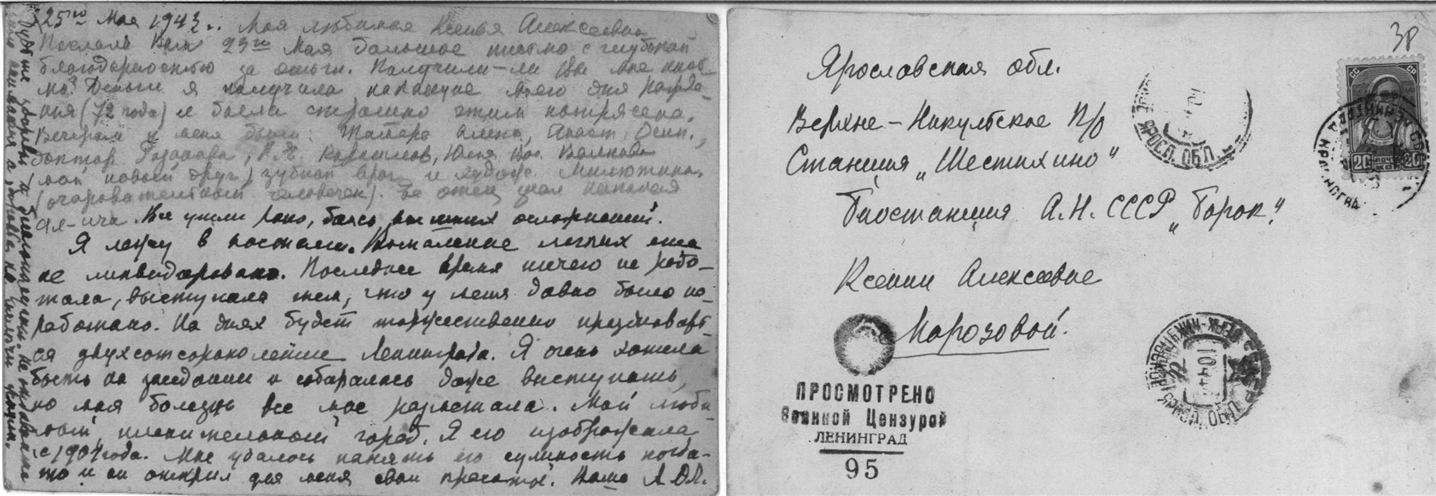 25го Мая 1943 г. Моя любимая Ксенья Алексеевна
Послала Вам 23го Мая большое письмо с глубокой
благодарностью за деньги. Получили-ли Вы мое пись-
мо? Деньги я получила накануне моего дня рожде-
ния (72 года) и была страшно этим потрясена.
Вечером у меня были: Тамара Алекс., Анаст. Осип.,
доктор Розанова, Юлия
мой новый друг, зубной врач и художн. Милютина
(очаровательный человечек). Ее отец
ал-ича. Все ушли рано, боясь осложнений.
Я лежу в постели. Воспаление легких еще
не ликвидировано. Последнее время ничего не рабо-
тала, выступала тем, что у меня давно было на-
работано. На днях будет торжественно праздновать-
ся двухсотсорокалетие Ленинграда. Я очень хотела
быть на заседании и собиралась даже выступать,
но моя болезнь все мое разметала. Мой люби-
мый, пленительный город. Я его изображала
с 1901 года. Мне удалось понять его сущность когда-
то и он открыл для меня свои красоты. Ваша А. О. Л.
Будьте здоровы и
Ярославская обл.
Верхне-Никульское п/о
Станция „Шестихино"
Биостанция А.Н. СССР „Борок".
Ксении Алексеевне
Морозовой.
20 20
ЯРОСЛ. ОБЛ.
ПРОСМОТРЕНО
Военной Цензурой
ЛЕНИНГРАД
95